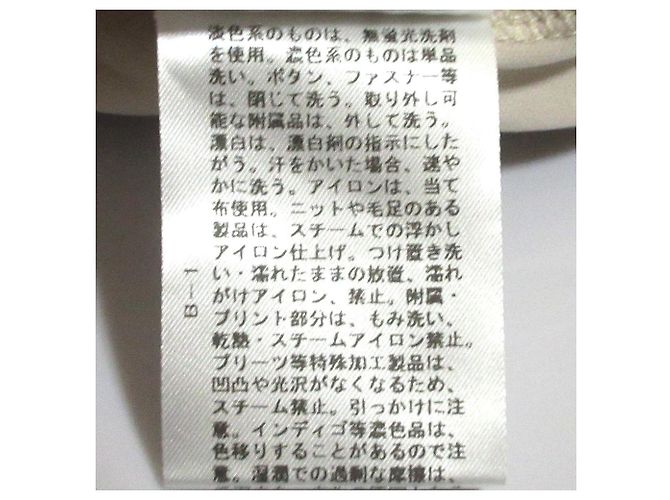 淡色系のものは、無蛍光洗剤
を使用。濃色系のものは単品
洗い。ボタン、ファスナー等
は、閉じて洗う。取り外し可
能な附属品は、外して洗う。
漂白は、漂白剤の指示にした
がう。汗をかいた場合、速や
かに洗う。アイロンは、当て
布使用。ニットや毛足のある
製品は、スチームでの浮かし
アイロン仕上げ。つけ置き洗
い・濡れたままの放置、濡れ
がけアイロン、禁止。附属・
プリント部分は、もみ洗い、
乾熱・スチームアイロン禁止。
プリーツ等特殊加工製品は、
凹凸や光沢がなくなるため、
スチーム禁止。引っかけに注
意。インディゴ等濃色品は、
色移りすることがあるので注
意。湿潤での過剰な摩擦は、
B-1